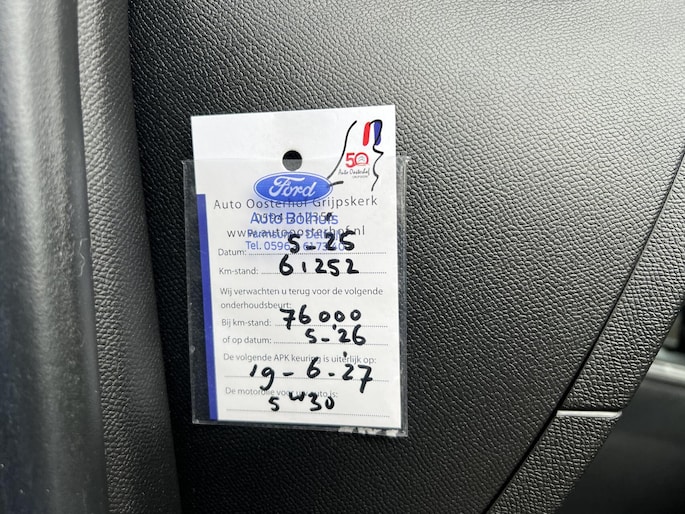 50
Auto Oosterhof
Ford
Auto Oosterhof Grijpskerk
Auto Bolhuis
www.autooosterhof.nl
Datum: 5-25
Km-stand: 61252
Wij verwachten u terug voor de volgende
onderhoudsbeurt:
Bij km-stand: 76000
of op datum: 5-26
De volgende APK keuring is uiterlijk op:
19-6-27
De motorolie voor uw auto is:
5w30